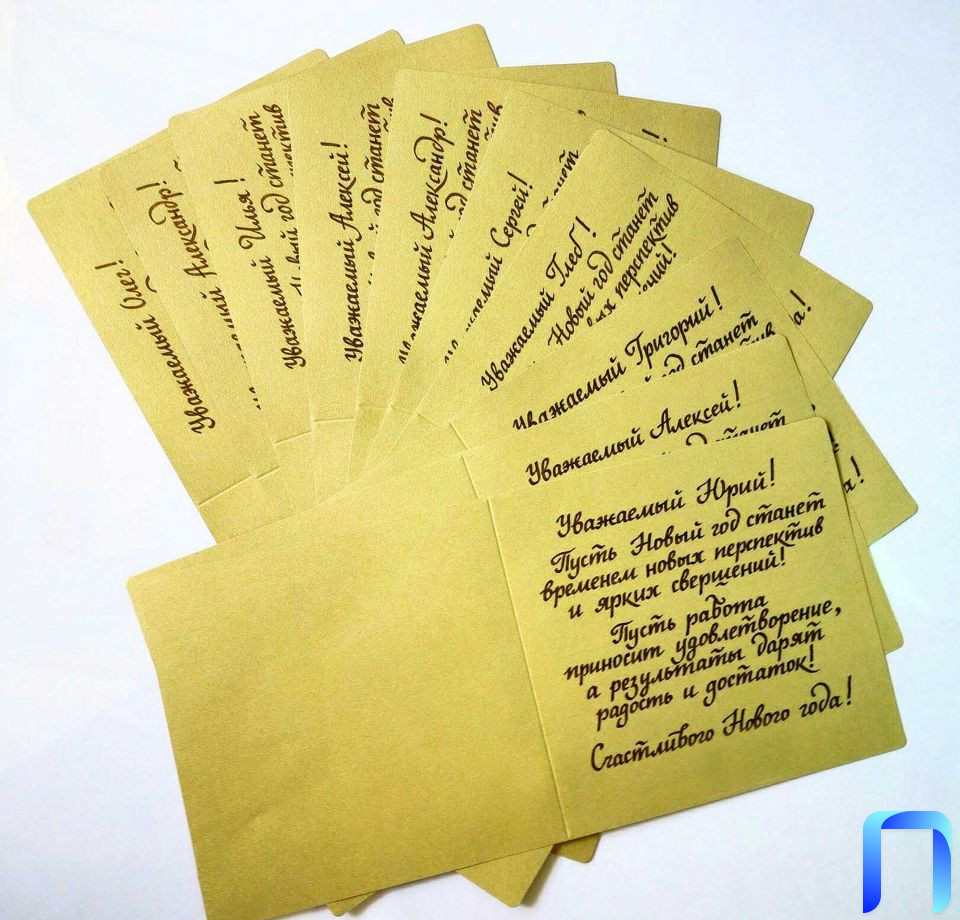 Уважаемый Олег!
Уважаемый Александр!
Уважаемый Илья!
Новый год станет
Уважаемый Алексей!
год станет
Уважаемый Александр!
год станет
Уважаемый Сергей!
станет
Уважаемый Глеб!
Новый год станет
новых перспектив
Уважаемый Григорий!
год станет
Уважаемый Алексей!
станет
Уважаемый Юрий!
Пусть Новый год станет
временем новых перспектив
и ярких свершений!
Пусть работа
приносит удовлетворение,
а результаты дарят
радость и достаток!
Счастливого Нового года!